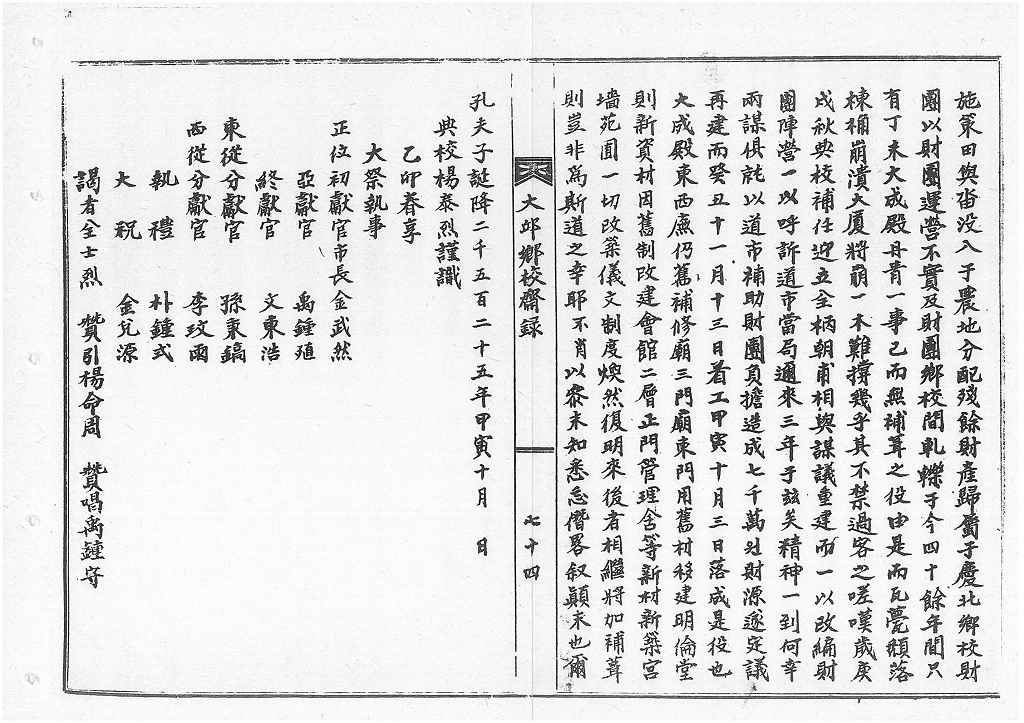 施策田與畓没入于農地分配殘餘財產歸屬于慶北鄉校財
團以財團運營不實及財團鄉校間軋轢于今四十餘年間只
有丁未大成殿丹青一事已而無補葺之役由是而瓦甍頹落
棟桷崩潰大厦將崩一木難撐幾乎其不禁過客之嗟嘆歲庚
戌秋典校補任迎立全柄朝甫相與謀議重建而一以改編財
團陣營一以呼訴道市當局邇來三年于玆矣精神一到何幸
兩謀俱就以道市補助財團負擔造成七千萬원財源遂定議
再建而癸丑十一月十三日着工甲寅十月三日落成是役也
大成殿東西廡仍舊補修廟三門廟東門用舊材移建明倫堂
則新資材因舊制改建會館二層正門管理舍等新材新築宮
墻苑囿一切改築儀文制度煥然復明來後者相繼將加補葺
則豈非爲斯道之幸耶不肖以忝末知悉忘僭畧叙顚末也爾
大邱鄉校齋録
七十四
孔夫子誕降二千五百二十五年甲寅十月 日
典校楊泰烈謹識
乙卯春享
大祭執事
正位初獻官市長金武然
亞獻官 禹鍾殖
終獻官 文東浩
東從分獻官 孫秉鎬
西從分獻官 李玟雨
執禮 朴鍾式
大祝 金兌源
謁者全士烈 贊引楊命周 贊唱禹鍾守